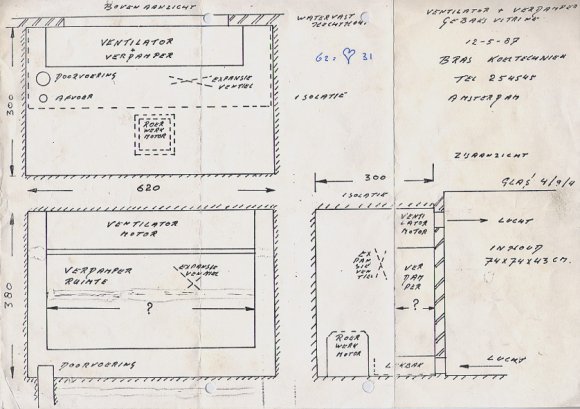 BOVEN AANZICHT
VENTILATOR
+
VERDAMPER
DOORVOERING
AFVOER
EXPANSIE
VENTIEL
ROER
WERK
MOTOR
300
620
WATERVAST
62:
31
ISOLATIE
VENTILATOR + VERDAMPER
GEBAKS VITRINE
12-5-87
BRAS KOELTECHNIEK
TEL 254545
AMSTERDAM
ZIJAANZICHT
300
ISOLATIE
GLAS 4/9/4
VENTILATOR
MOTOR
VERDAMPER
RUIMTE
EXPANSIE
VENTIEL
?
380
DOORVOERING
VENTI
LATOR
MOTOR
EX
PAN
SIE
VEN
TIEL
VER
DAM
PER
?
ROER
WERK
MOTOR
LEKBAK
LUCHT
INHOUD
74X74X43 CM.
LUCHT